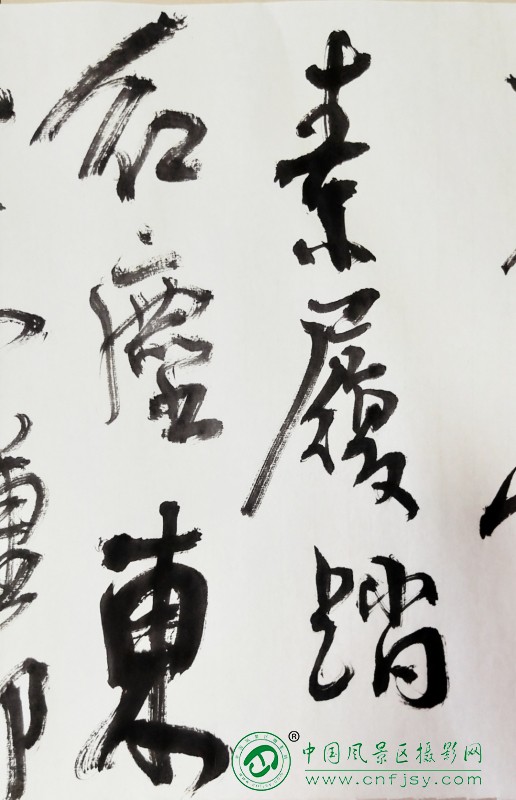 素履踏
红塵東
®
中国风景区摄影网
www.cnfjsy.com